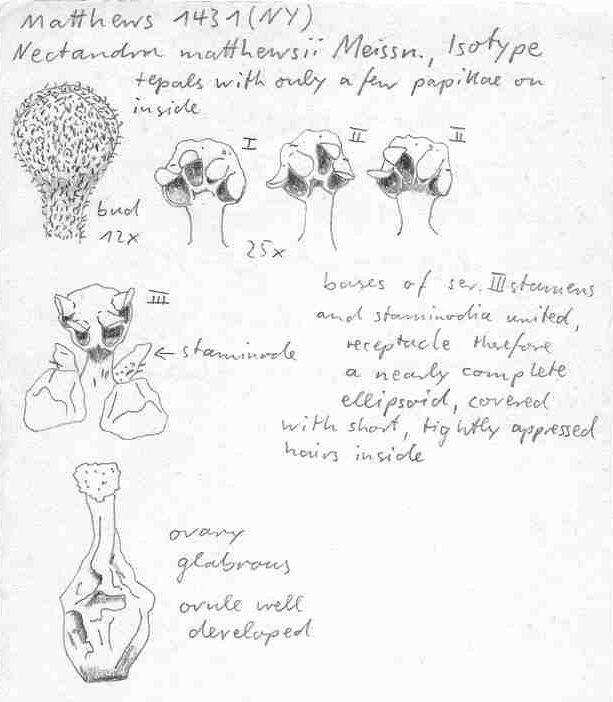 Matthews 1431 (NY)
Nectandra matthewsii Meissn., Isotype
tepals with only a few papillae on
inside
I
II
II
bud
12x
25x
III
← staminode
bases of ser. III stamens
and staminodia united,
receptacle therefore
a nearly complete
ellipsoid, covered
with short, tightly appressed
hairs inside
ovary
glabrous
ovule well
developed